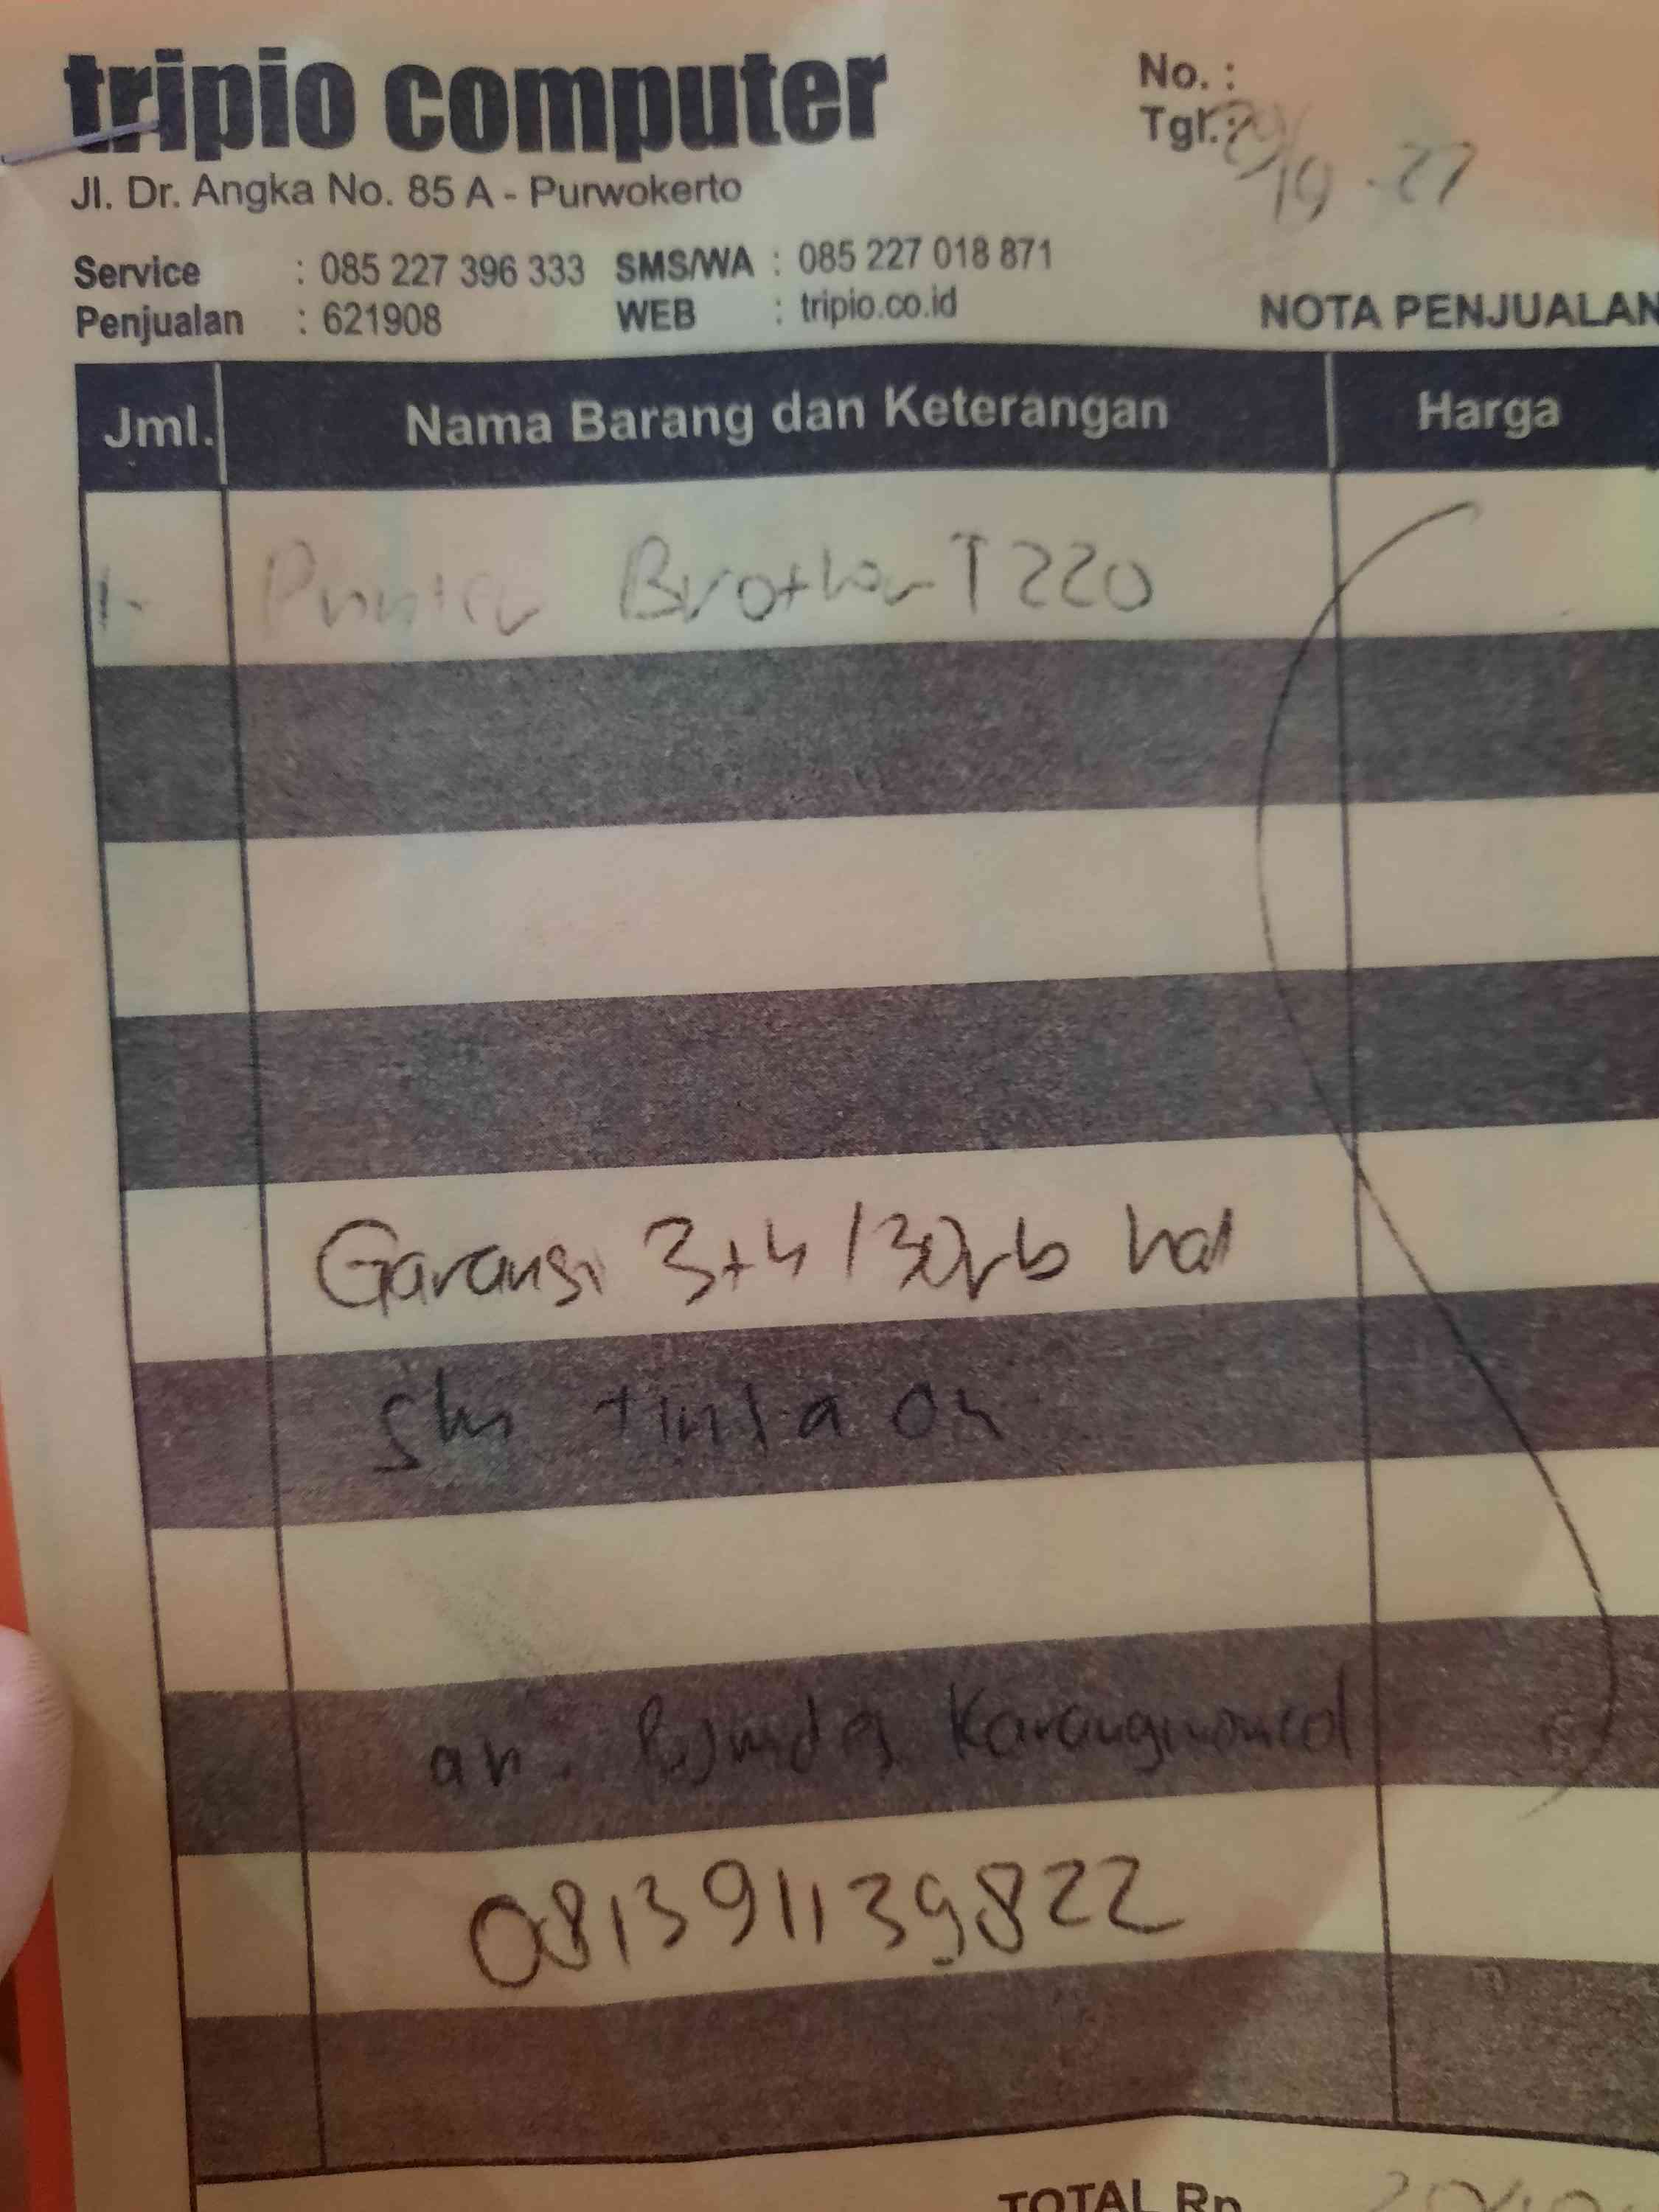 tripio computer
No. :
Tgl.:
Jl. Dr. Angka No. 85 A - Purwokerto
Service : 085 227 396 333 SMS/WA : 085 227 018 871
Penjualan : 621908 WEB : tripio.co.id
NOTA PENJUALAN
Jml. Nama Barang dan Keterangan Harga
1- Printer Brother T220
Garansi 3+4 / 30rb hal
tinta OK
an. Karangmoncol
081391139822
TOTAL Rp